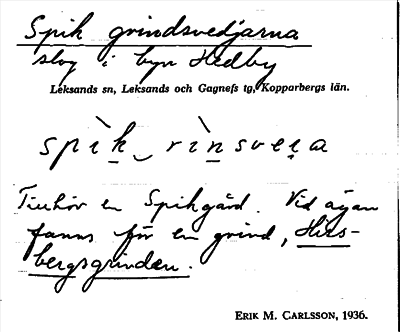 Spik grindsvedjarna
slog i byn Hedby
Leksands sn, Leksands och Gagnefs tg, Kopparbergs län.
spìk‿rìnsveẹa
Tillhör en Spikgård. Vid ägan
fanns för en grind, Hiss-
bergsgrinden.
ERIK M. CARLSSON, 1936.